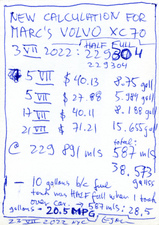 NEW CALCULATION FOR
MARC'S VOLVO XC70
HALF FULL
3 VII 2022: 229304
229304
5 VII $40.13 8.75 gall
5 VII $27.88 5.984 gall
17 VII $40.11 8.188 gall
21 VII $71.21 15.655 gall
@ 229 891 mls total:
587 mls
38.573
galls
— 10 gallons b/c fuel
tank was HALF full when I
took over car. → 587 mls: 28,5
gallons = 20.5 MPG
23 VII 2022 NYC